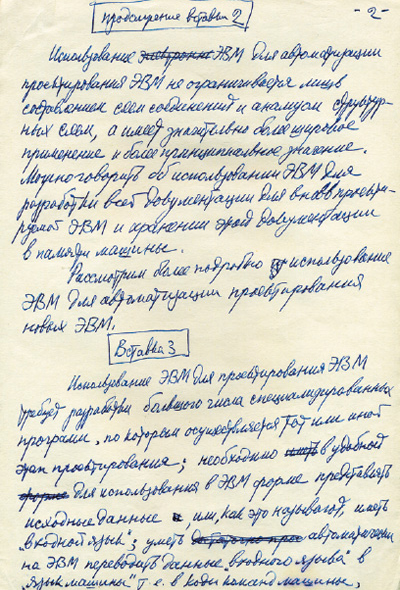 продолжение вставки 2
- 2 -
Использование электронн ЭВМ для автоматизации
проектирования ЭВМ не ограничивается лишь
составлением схем соединений и анализом структур-
ных схем, а имеет значительно более широкое
применение и более принципиальное значение.
Можно говорить об использовании ЭВМ для
разработки всей документации для вновь проекти-
руемой ЭВМ и хранении этой документации
в памяти машины.
Рассмотрим более подробно использование
ЭВМ для автоматизации проектирования
новых ЭВМ.
Вставка 3
Использование ЭВМ для проектирования ЭВМ
требует разработки большого числа специализированных
программ, по которым осуществляется тот или иной
этап проектирования; необходимо иметь в удобной
форме для использования в ЭВМ форме представлять
исходные данные и, или, как это называют, иметь
"входной язык"; уметь автоматически
на ЭВМ переводить данные входного языка" в
"язык машины" т.е. в коды команд машины,